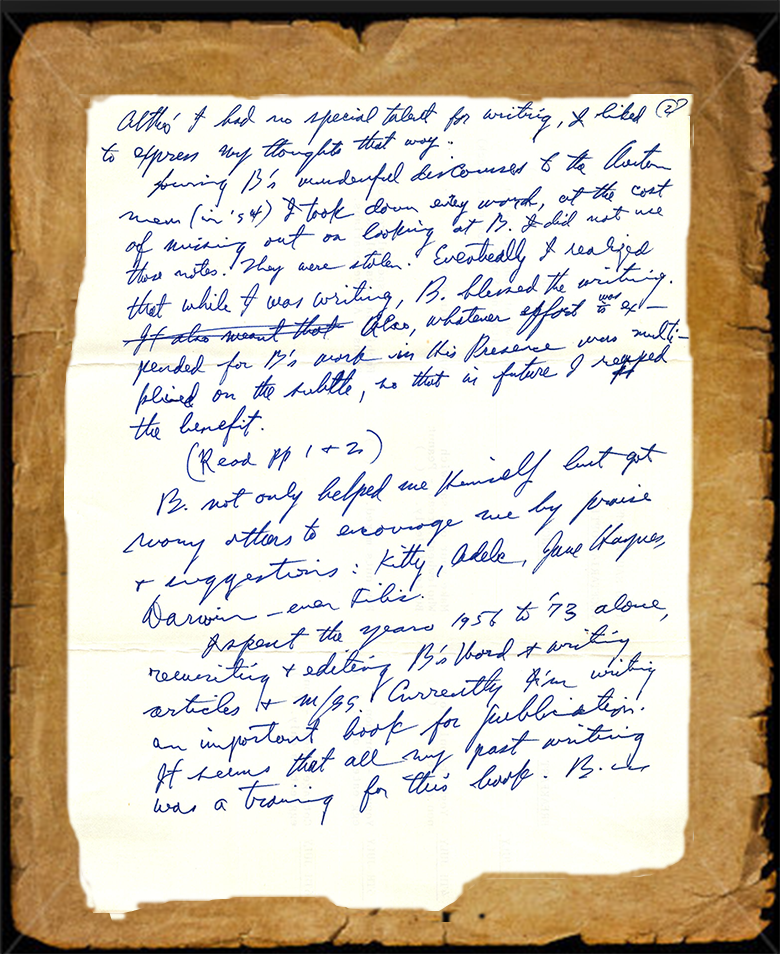 Altho' I had no special talent for writing, I liked (2)
to express my thoughts that way.
During B's wonderful discourses to the Western
men (in '54) I took down every word, at the cost
of missing out on looking at B. I did not use
those notes. They were stolen. Eventually I realized
that while I was writing, B. blessed the writing.
It also meant that Also, whatever effort was ex-
pended for B's work in His Presence was multi-
plied on the subtle, so that in future I reaped
the benefit.
(Read pp 1 + 2)
B. not only helped me Himself but got
many others to encourage me by praise
+ suggestions: Kitty, Adele, Jane Haynes,
Darwin - even Filis.
I spent the years 1956 to '73 alone,
rewriting + editing B's Word + writing
articles + m/ss. Currently I'm writing
an important book for publication.
It seems that all my past writing
was a training for this book. B.